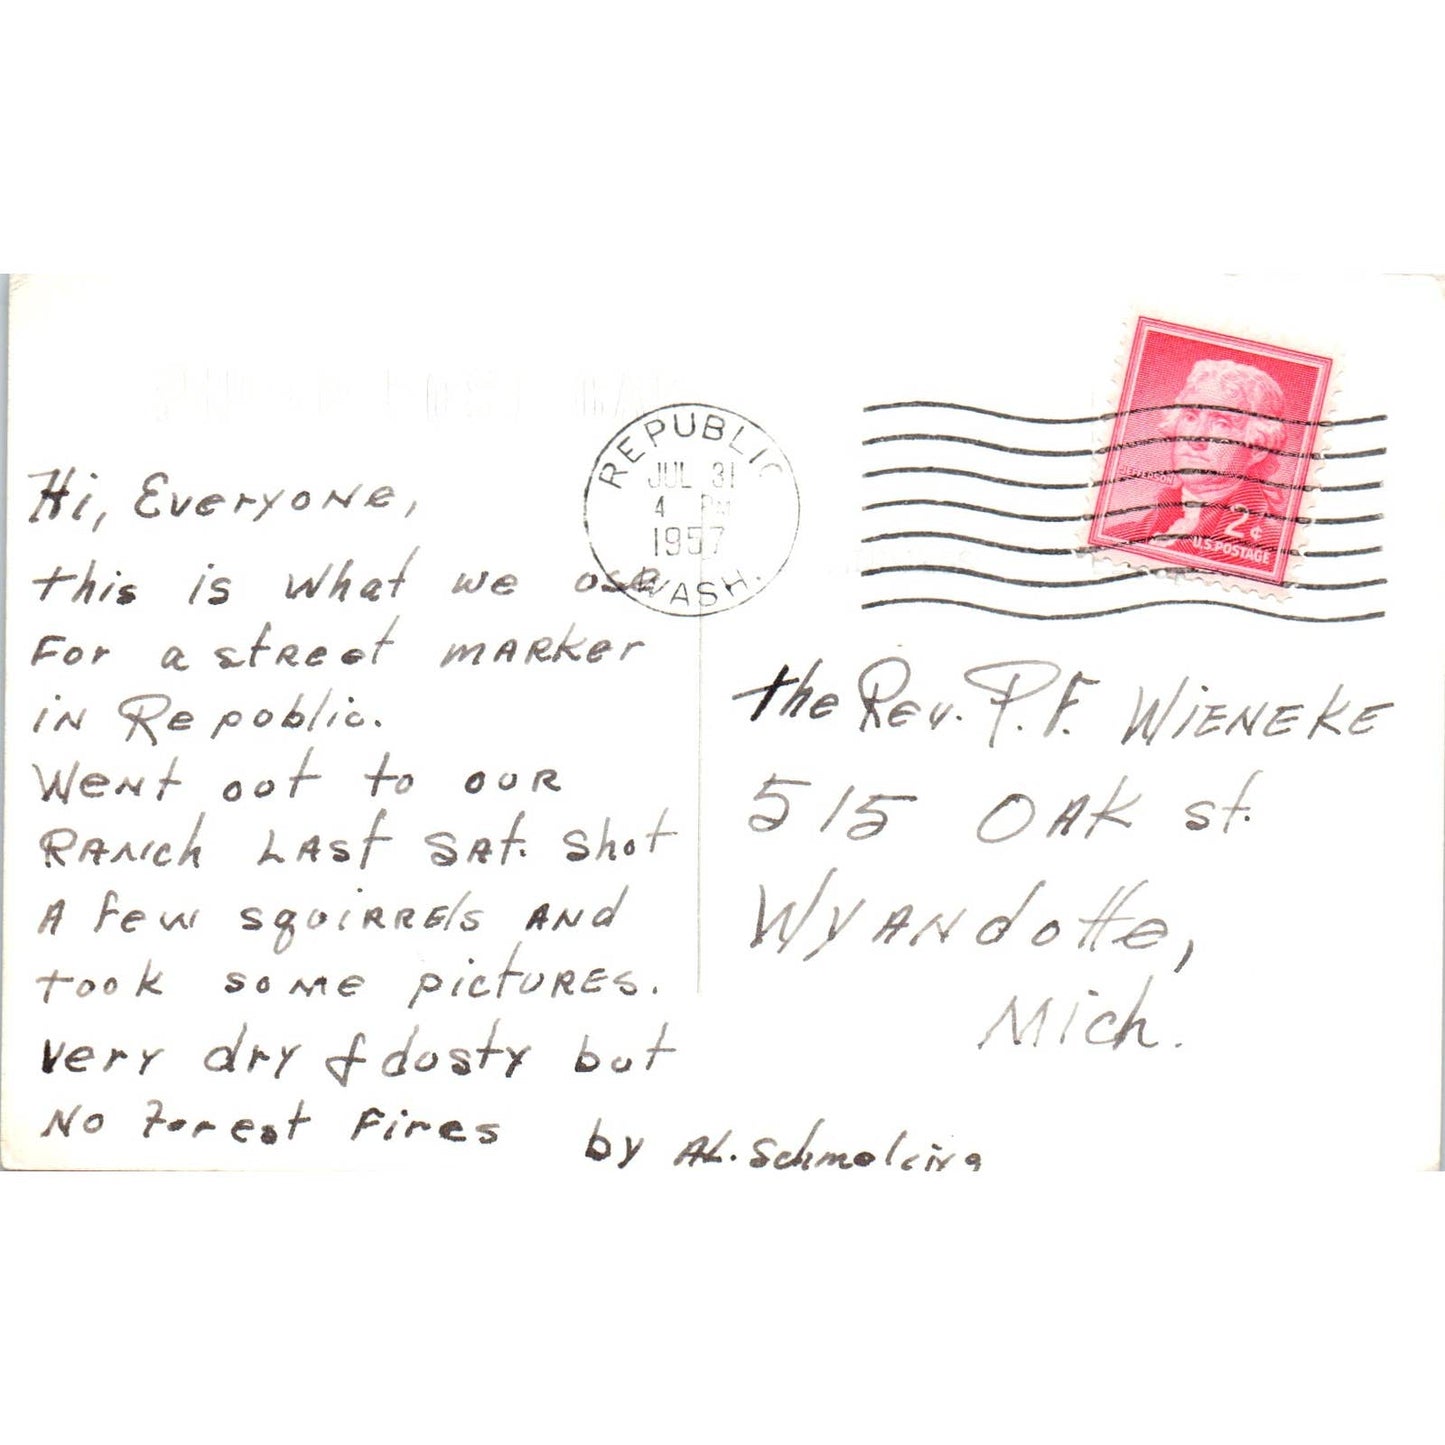 Hi, Everyone,
this is what we use
For a street marker
in Republic.
Went out to our
Ranch Last Sat. shot
A few squirrels and
took some pictures.
Very dry & dusty but
No Forest Fires
by AL. Schmeling
REPUBLIC
JUL 31
4 PM
1957
WASH.
JEFFERSON
2¢
U.S. POSTAGE
the Rev. P.F. WIENEKE
515 OAK St.
Wyandotte,
Mich.